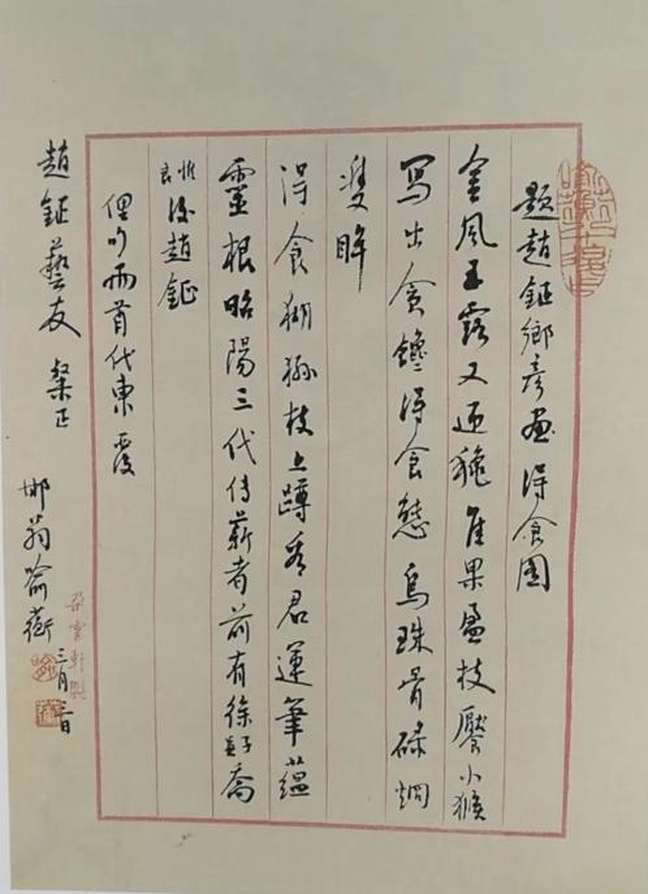 題趙鉦鄉彥畫得食圖
金風玉露又迎龝佳果盈枝饜小猴
寫出貪饞得食態烏珠骨碌烱
雙眸
得食猢猻枝上蹲看君運筆蘊
靈根昭陽三代傳薪者前有徐子兼喬
惟良後趙鉦
俚句兩首代柬覆
趙鉦藝友 粲正
邗翁喻蘅 三月
朵雲軒製